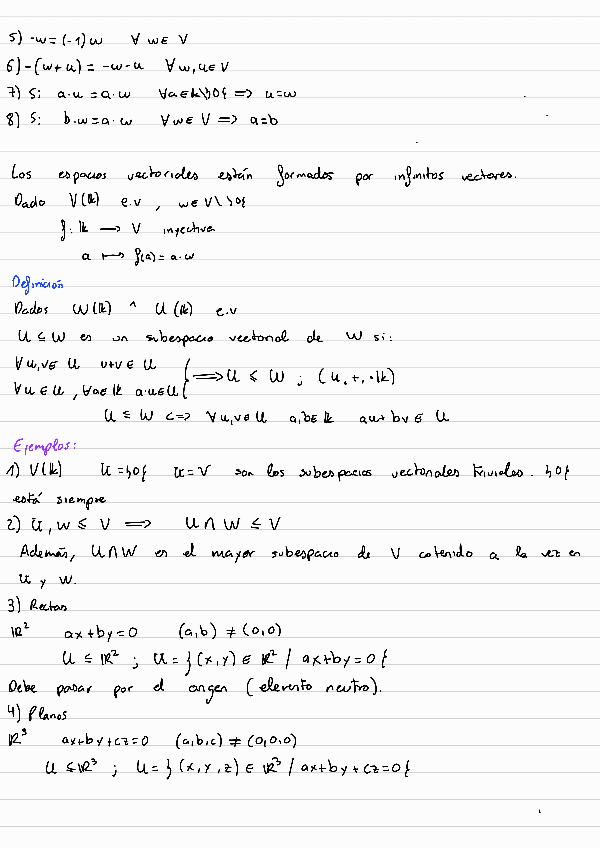 5) -w = (-1)w ∀ w ∈ V
6) -(w+u) = -w-u ∀ w, u ∈ V
7) Si a·u = a·w ∀a∈k\{0} ⟹ u=w
8) Si b·w = a·w ∀w∈V ⟹ a=b
Los espacios vectoriales están formados por infinitos vectores.
Dado V(k) e.v , w∈V\{0}
f: k ⟶ V inyectiva
a ⟼ f(a) = a·w
Definición
Dados W(k) ^ U(k) e.v
U ⊆ W es un subespacio vectorial de W si:
∀u,v∈ U u+v ∈ U
∀u∈U, ∀a∈k a·u∈U } ⟹ U ≤ W ; (U,+,·k)
U ≤ W <=> ∀u,v∈U a,b∈k au+bv ∈ U
Ejemplos:
1) V(k) U={0} U=V son los subespacios vectoriales triviales. {0}
está siempre
2) U, W ≤ V ⟹ U∩W ≤ V
Además, U∩W es el mayor subespacio de V cotenido a la vez en
U y W.
3) Rectas
ℝ² ax+by=0 (a,b) ≠ (0,0)
U ≤ ℝ² ; U = {(x,y) ∈ ℝ² / ax+by=0}
Debe pasar por el origen (elemento neutro).
4) Planos
ℝ³ ax+by+cz=0 (a,b,c) ≠ (0,0,0)
U ≤ ℝ³ ; U = {(x,y,z) ∈ ℝ³ / ax+by+cz=0}